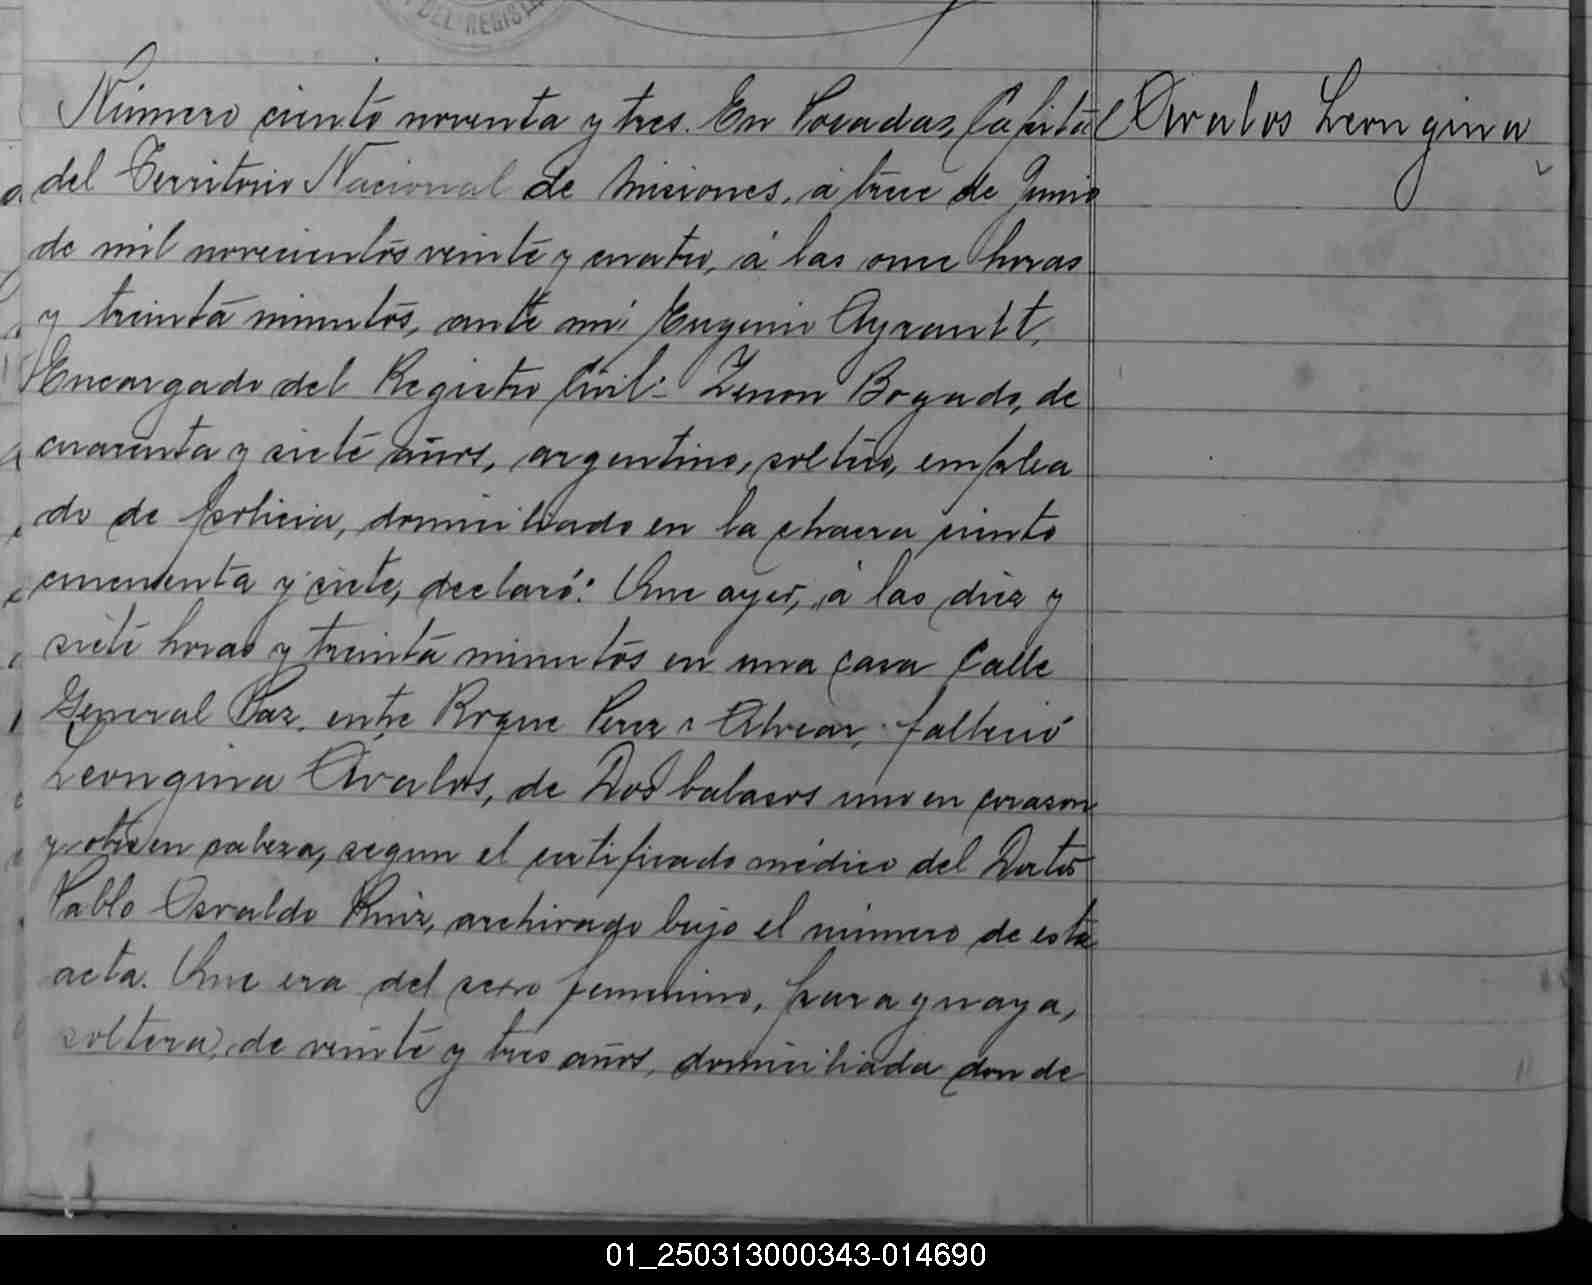 DEL REGIST
Número ciento noventa y tres. En Posadas, Capital
Avalos Leongina
del Territorio Nacional de Misiones, á trece de Junio
de mil novecientos veinte y cuatro, á las once horas
y treinta minutos, ante mi Eugenio Ayrault,
Encargado del Registro Civil: Zenon Bogado, de
cuarenta y siete años, argentino, soltero, emplea
do de policia, domiciliado en la chacra ciento
cincuenta y siete, declaró: Que ayer, á las diez y
siete horas y treinta minutos en una casa Calle
General Paz, entre Roque Perez y Alvear, falleció
Leongina Avalos, de Dos balasos uno en corason
y otro en cabeza, segun el certificado médico del Doctor
Pablo Osvaldo Ruiz, archivado bajo el número de esta
acta. Que era del sexo femenino, paraguaya,
soltera, de veinte y tres años, domiciliada donde
01_250313000343-014690